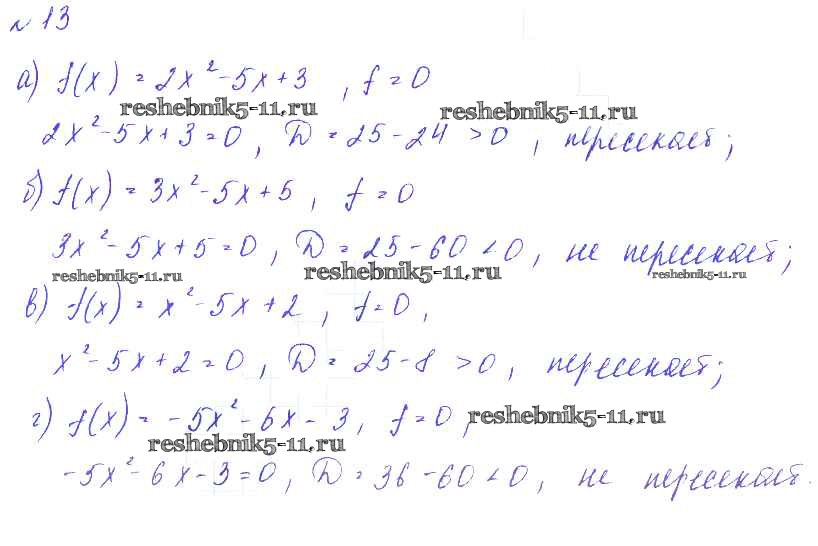 № 13
а) f(x) = 2x² - 5x + 3 , f = 0
reshebnik5-11.ru reshebnik5-11.ru
2x² - 5x + 3 = 0 , D = 25 - 24 > 0 , пересекает;
б) f(x) = 3x² - 5x + 5 , f = 0
3x² - 5x + 5 = 0 , D = 25 - 60 < 0 , не пересекает;
reshebnik5-11.ru reshebnik5-11.ru reshebnik5-11.ru
в) f(x) = x² - 5x + 2 , f = 0 ,
x² - 5x + 2 = 0 , D = 25 - 8 > 0 , пересекает;
г) f(x) = -5x² - 6x - 3 , f = 0 , reshebnik5-11.ru
reshebnik5-11.ru
-5x² - 6x - 3 = 0 , D = 36 - 60 < 0 , не пересекает.